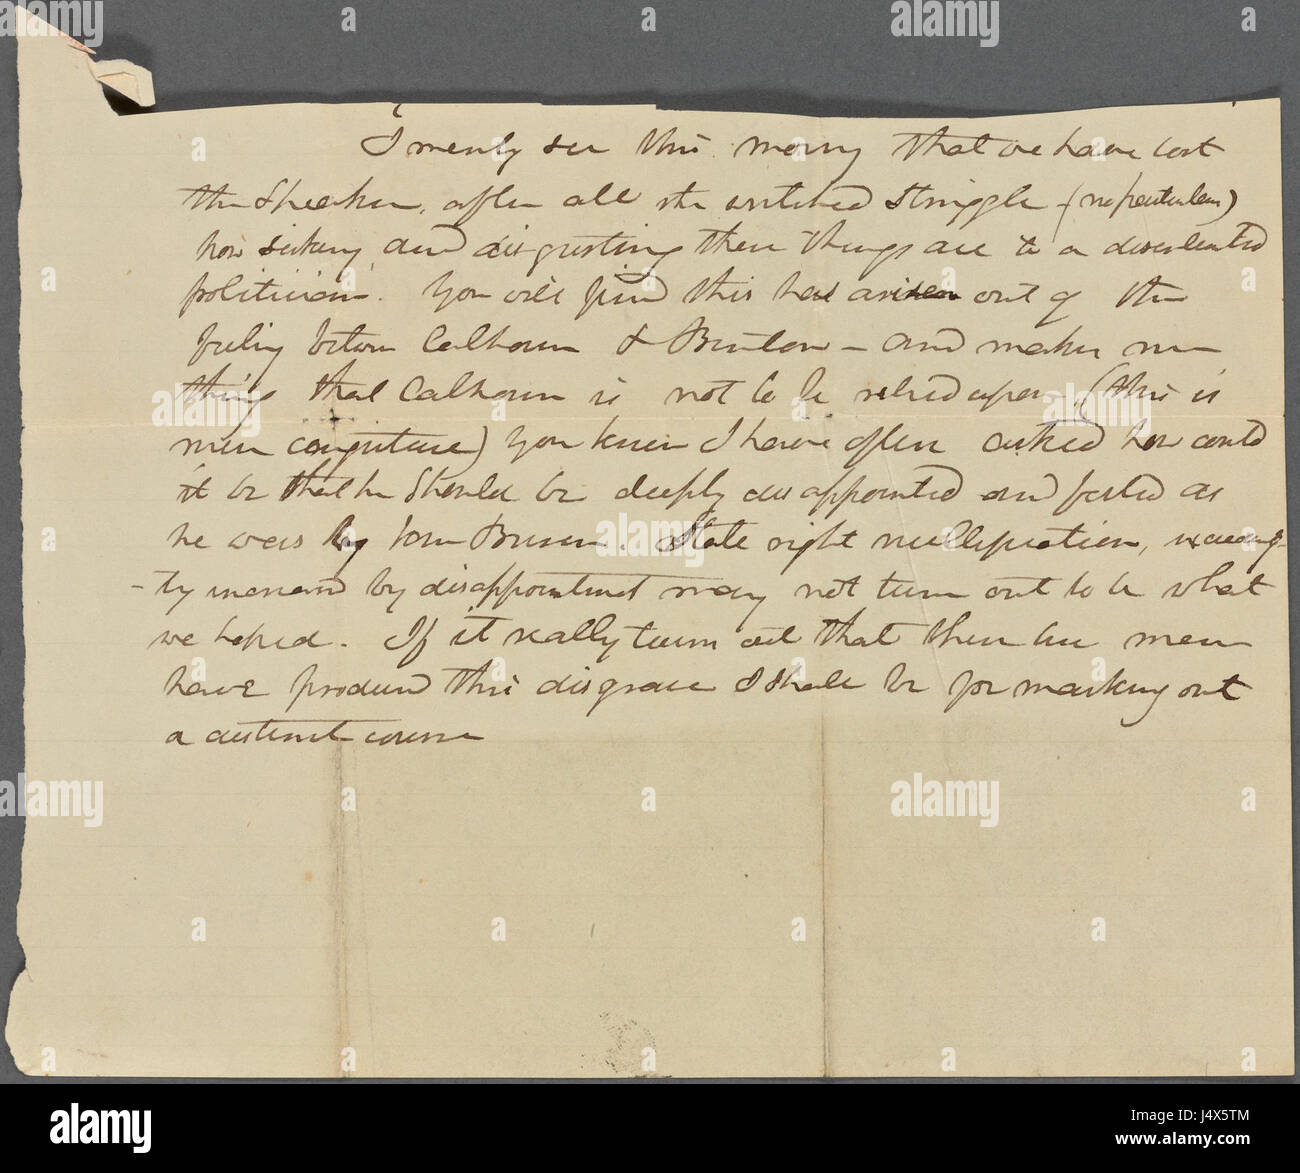 I merely see this morng that we have lost
the Speaker, after all the wretched struggle (no particulars)
how sickeng and disgusting these things are to a disinterested
politician. You will find this has arisen out of the
feeling between Calhoun & Benton — and makes me
think that Calhoun is not to be relied upon — (this is
mere conjecture) You know I have often asked how could
it be that he should be deeply disappointed and foiled as
he was by Van Buren. State right nullification, exceeding-
-ly increased by disappointment may not turn out to be what
we hoped. If it really turns out that these two men
have produced this disgrace I shall be for marking out
a distinct course
alamy
Image ID: J4X5TM
www.alamy.com